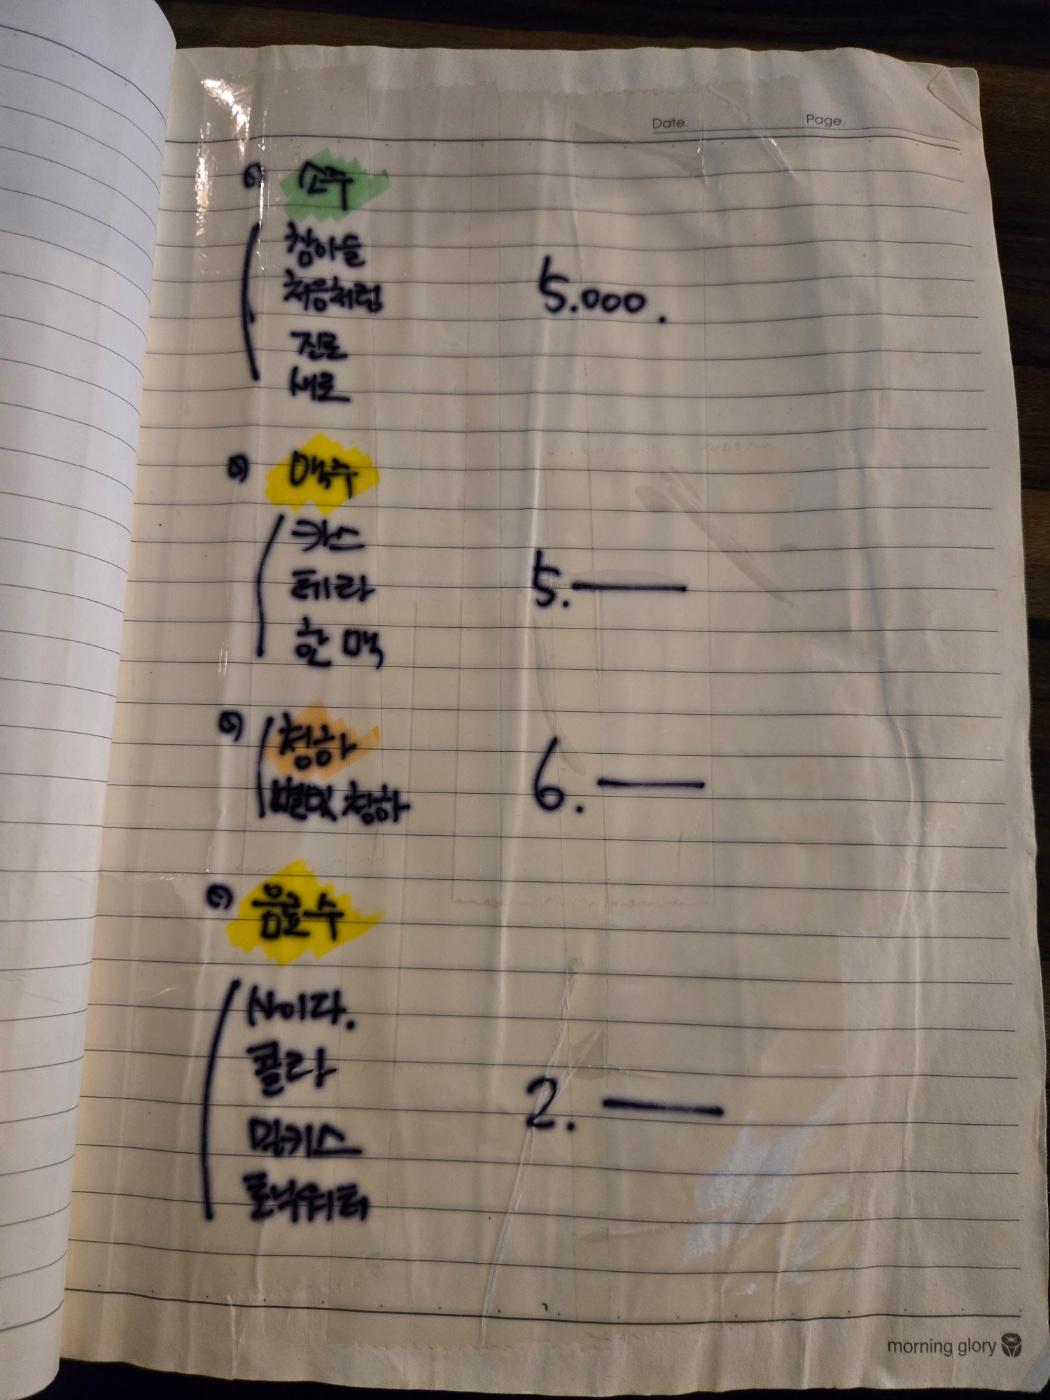 Date.
Page.
소주
참이슬
처음처럼 5.000.
진로
새로
맥주
카스
테라 5.—
한맥
청하
별빛 청하 6.—
음료수
사이다.
콜라
밀키스 2.—
토닉워터
morning glory